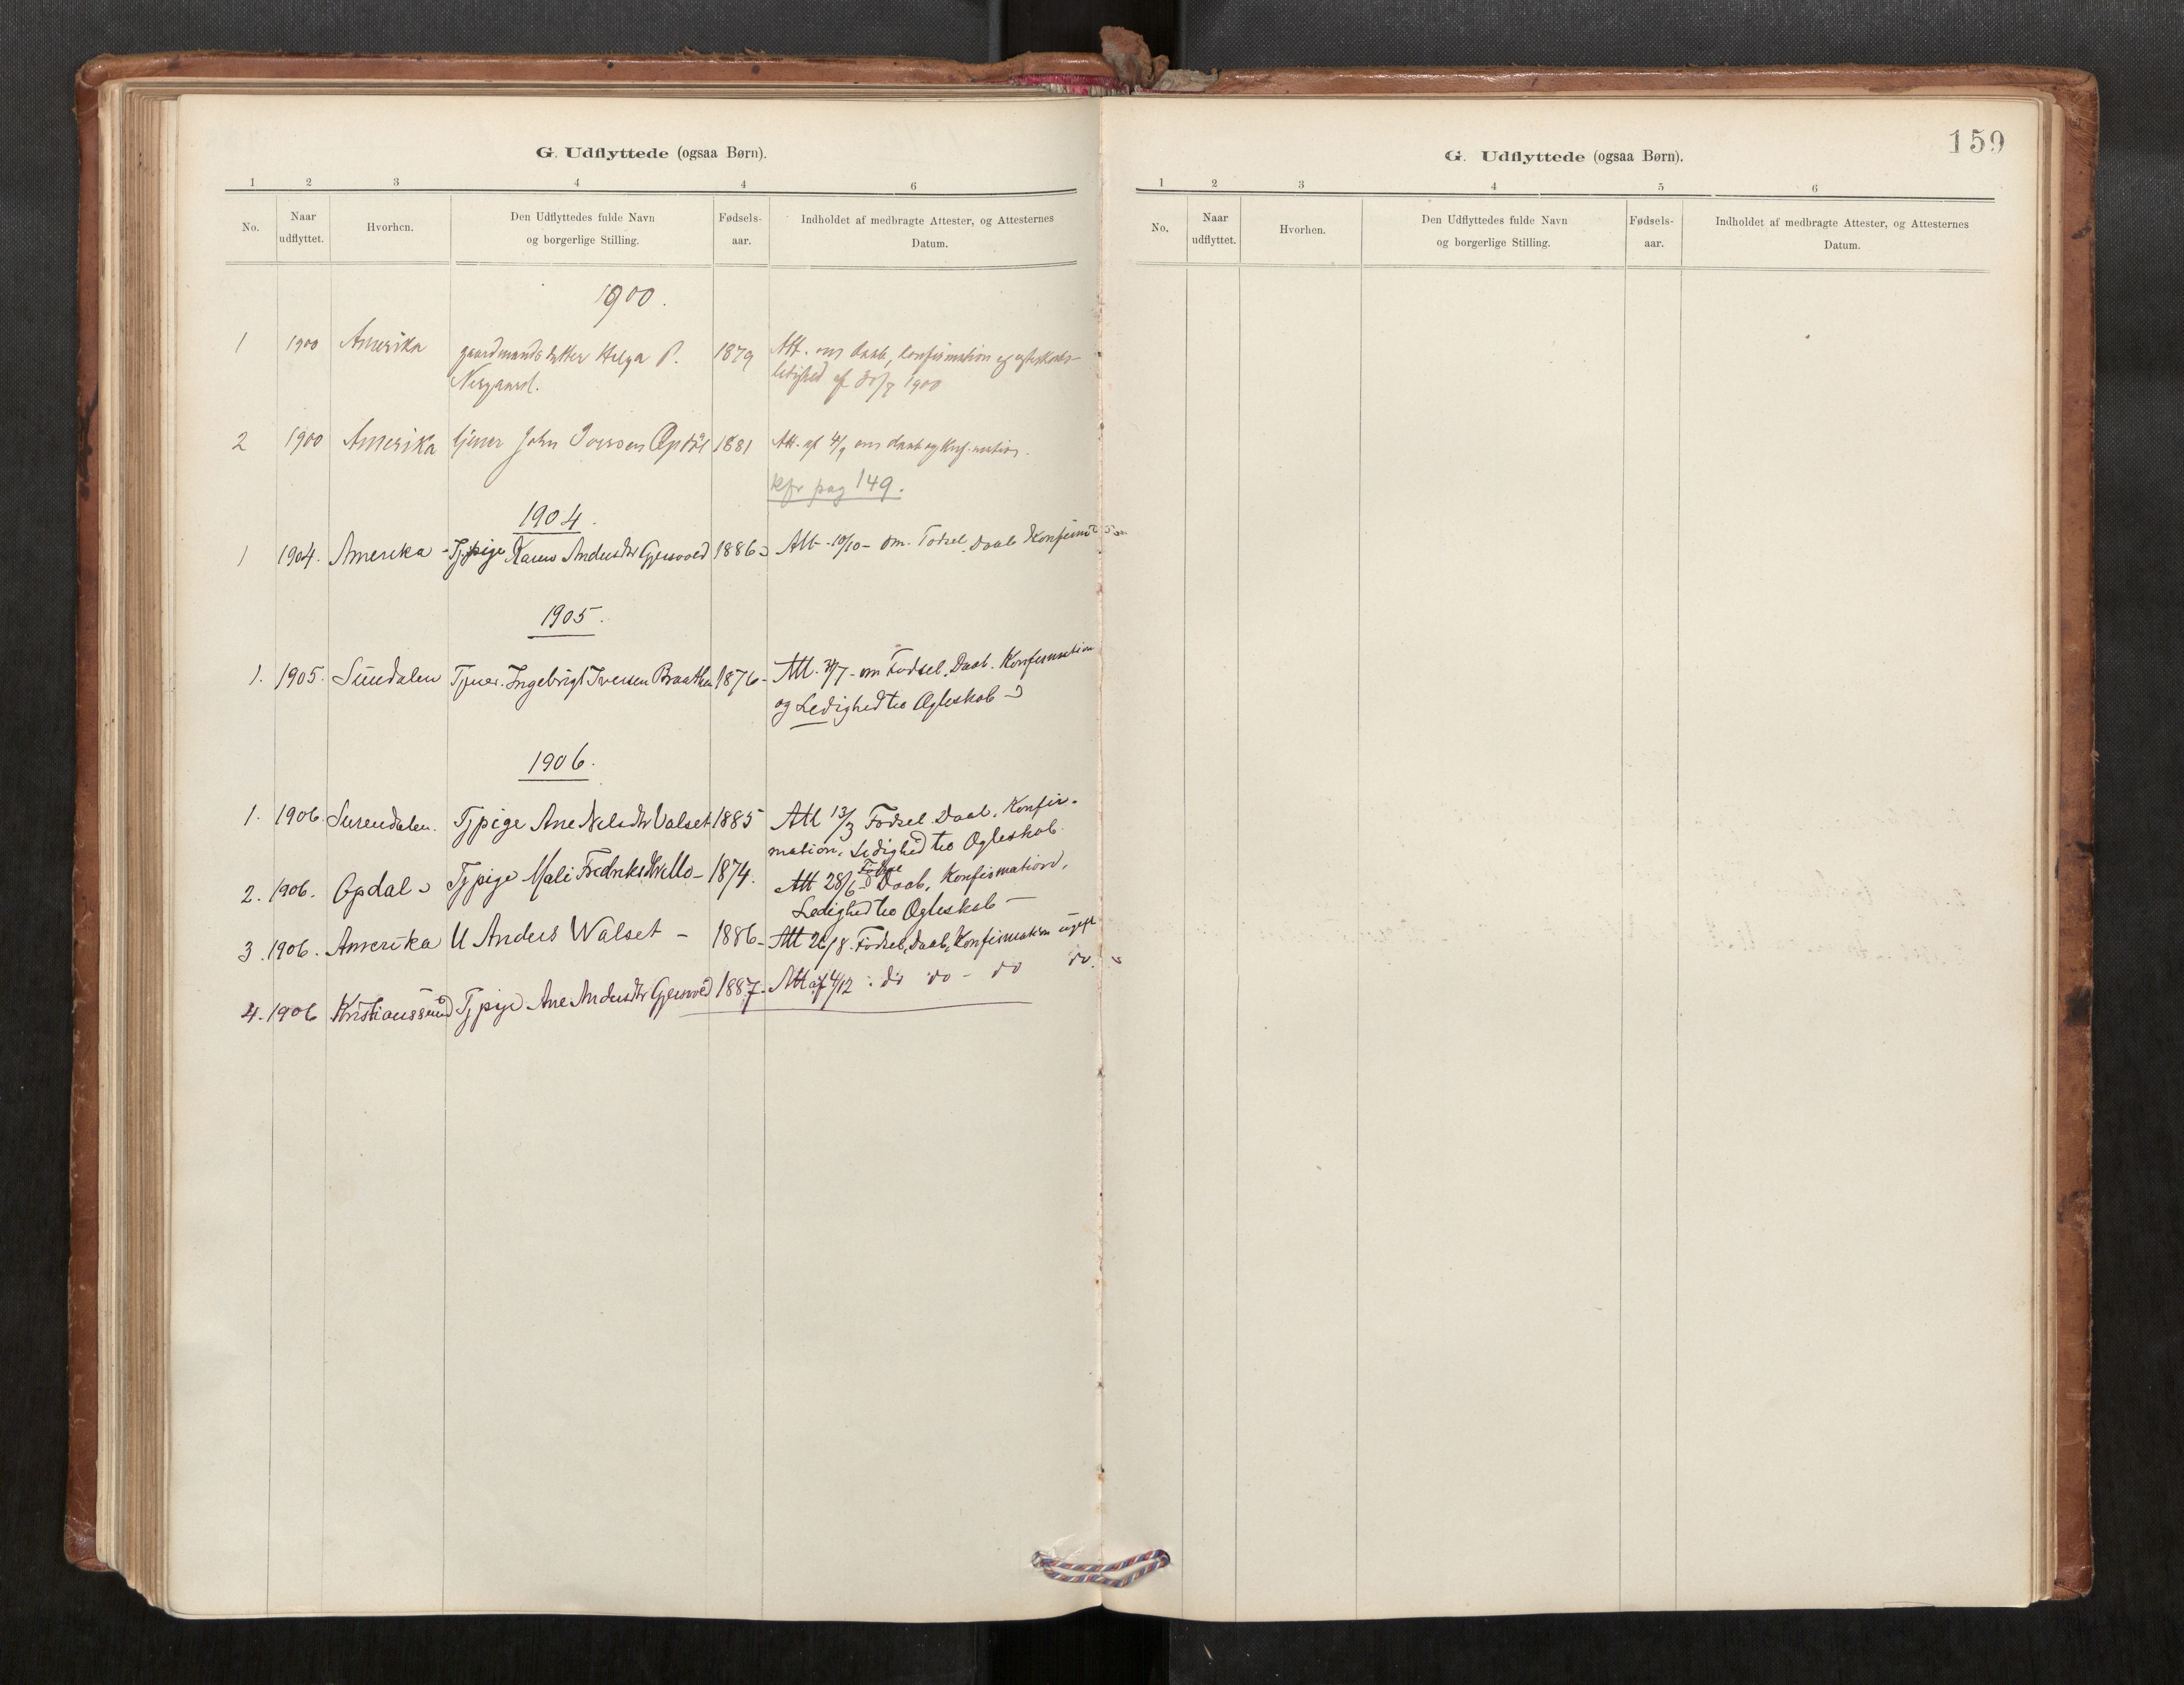 G. Udflyttede (ogsaa Børn).
1 2 3 4 4 6
No. Naar udflyttet. Hvorhen. Den Udflyttedes fulde Navn og borgerlige Stilling. Fødsels-aar. Indholdet af medbragte Attester, og Attesternes Datum.
1900.
1 1900 Amerika gaardmandsdatter Helga P. 1879 Att. om daab, konfirmation og egteskabs-
Nergaard. ledighed af 1900
2 1900 Amerika tjener John Iversen Opdøl 1881 Att. af 4/9 om daab og konf.mation.
kfr pag 149.
1904.
1 1904. Amerika - Tjpige Karen Andersdtr Gjersvold 1886 Att - 10/10 - om Fødsel Daab Konfirmation
1905.
1. 1905. Sundalen Tjener. Ingebrigt Iversen Braathen 1876 - Att. /7 - om Fødsel. Daab. Konfirmation
og Ledighed til Ægteskab -
1906.
1. 1906. Surendalen. Tjpige Ane Nelsdtr Valset 1885 Att 13/3 Fødsel Daab, Konfir-
mation. Ledighed til Ægteskab.
2. 1906. Opdal - Tjpige Mali Fredriksdtr Mo - 1874. Att 28/6 - Fødsel Daab, Konfirmation,
Ledighed til Ægteskab -
3. 1906. Amerika U Anders Walset - 1886 - Att 26/8. Fødsel, Daab, Konfirmation ugift
4. 1906 Kristianssund Tjpige Ane Andersdtr Gjersvold 1887. Att af 4/12 : do do - do do.
159
G. Udflyttede (ogsaa Børn).
1 2 3 4 5 6
No. Naar udflyttet. Hvorhen. Den Udflyttedes fulde Navn og borgerlige Stilling. Fødsels-aar. Indholdet af medbragte Attester, og Attesternes Datum.